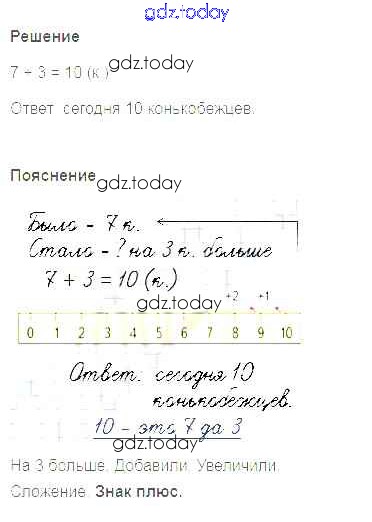 gdz.today
Решение
7 + 3 = 10 (к.)
gdz.today
Ответ: сегодня 10 конькобежцев.
Пояснение
gdz.today
Было - 7 к.
Стало - ? на 3 к. больше
7 + 3 = 10 (к.)
gdz.today
+2 +1
0 1 2 3 4 5 6 7 8 9 10
Ответ: сегодня 10
конькобежцев.
10 - это 7 да 3
gdz.today
На 3 больше. Добавили. Увеличили.
Сложение. Знак плюс.